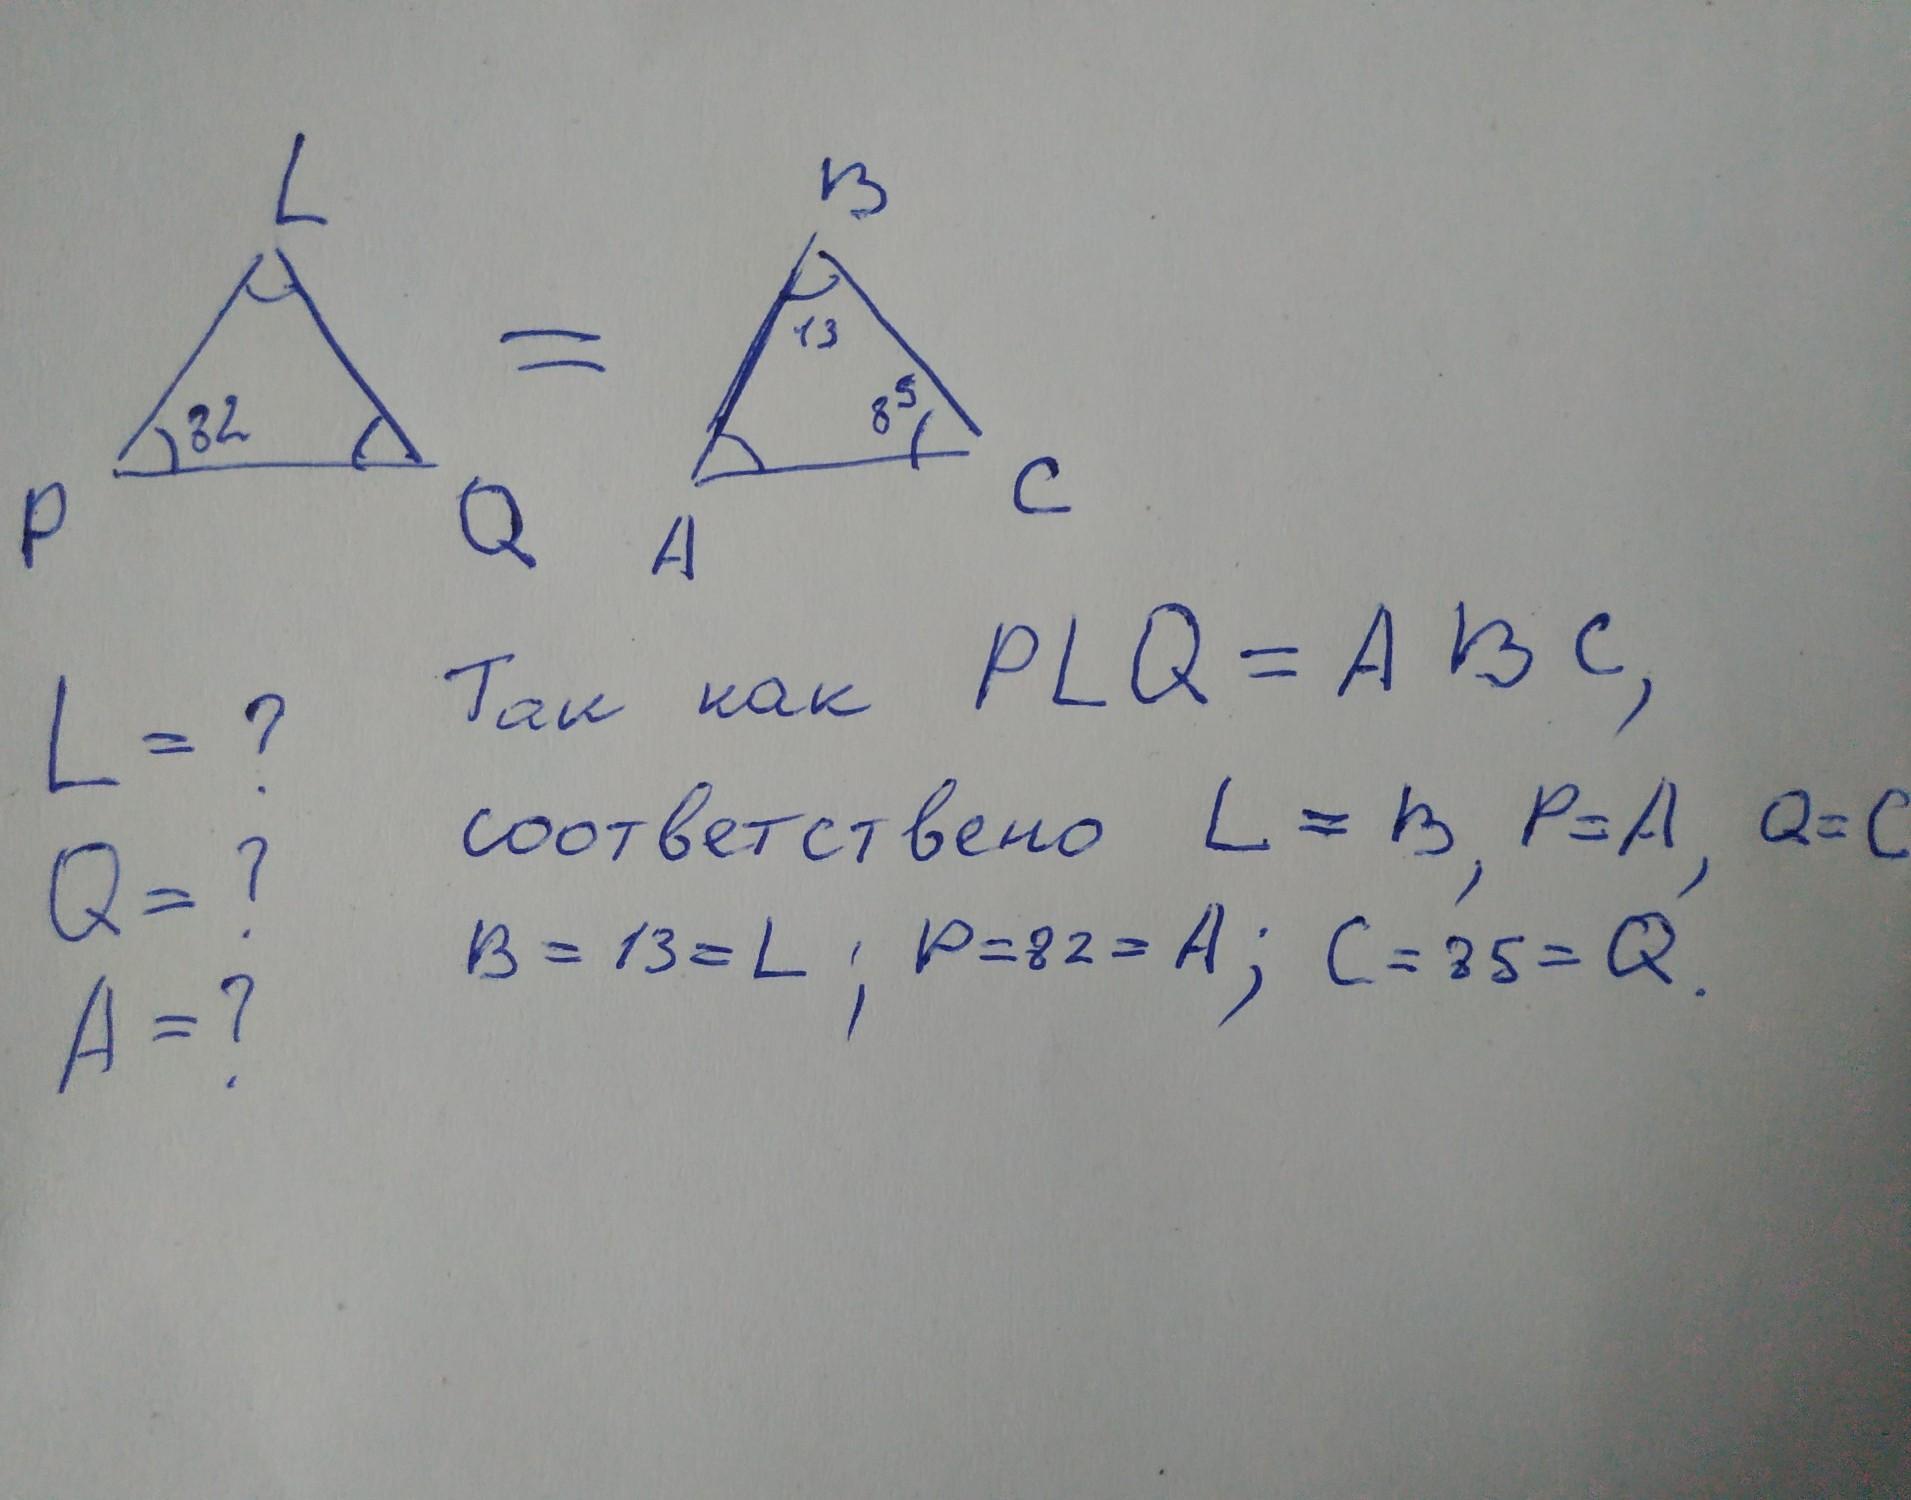 L
B
13
82
85
P
Q
A
C
L = ?
Q = ?
A = ?
Так как PLQ = ABC,
соответствено L = B, P=A, Q=C
B = 13 = L; P=82=A; C=85=Q.